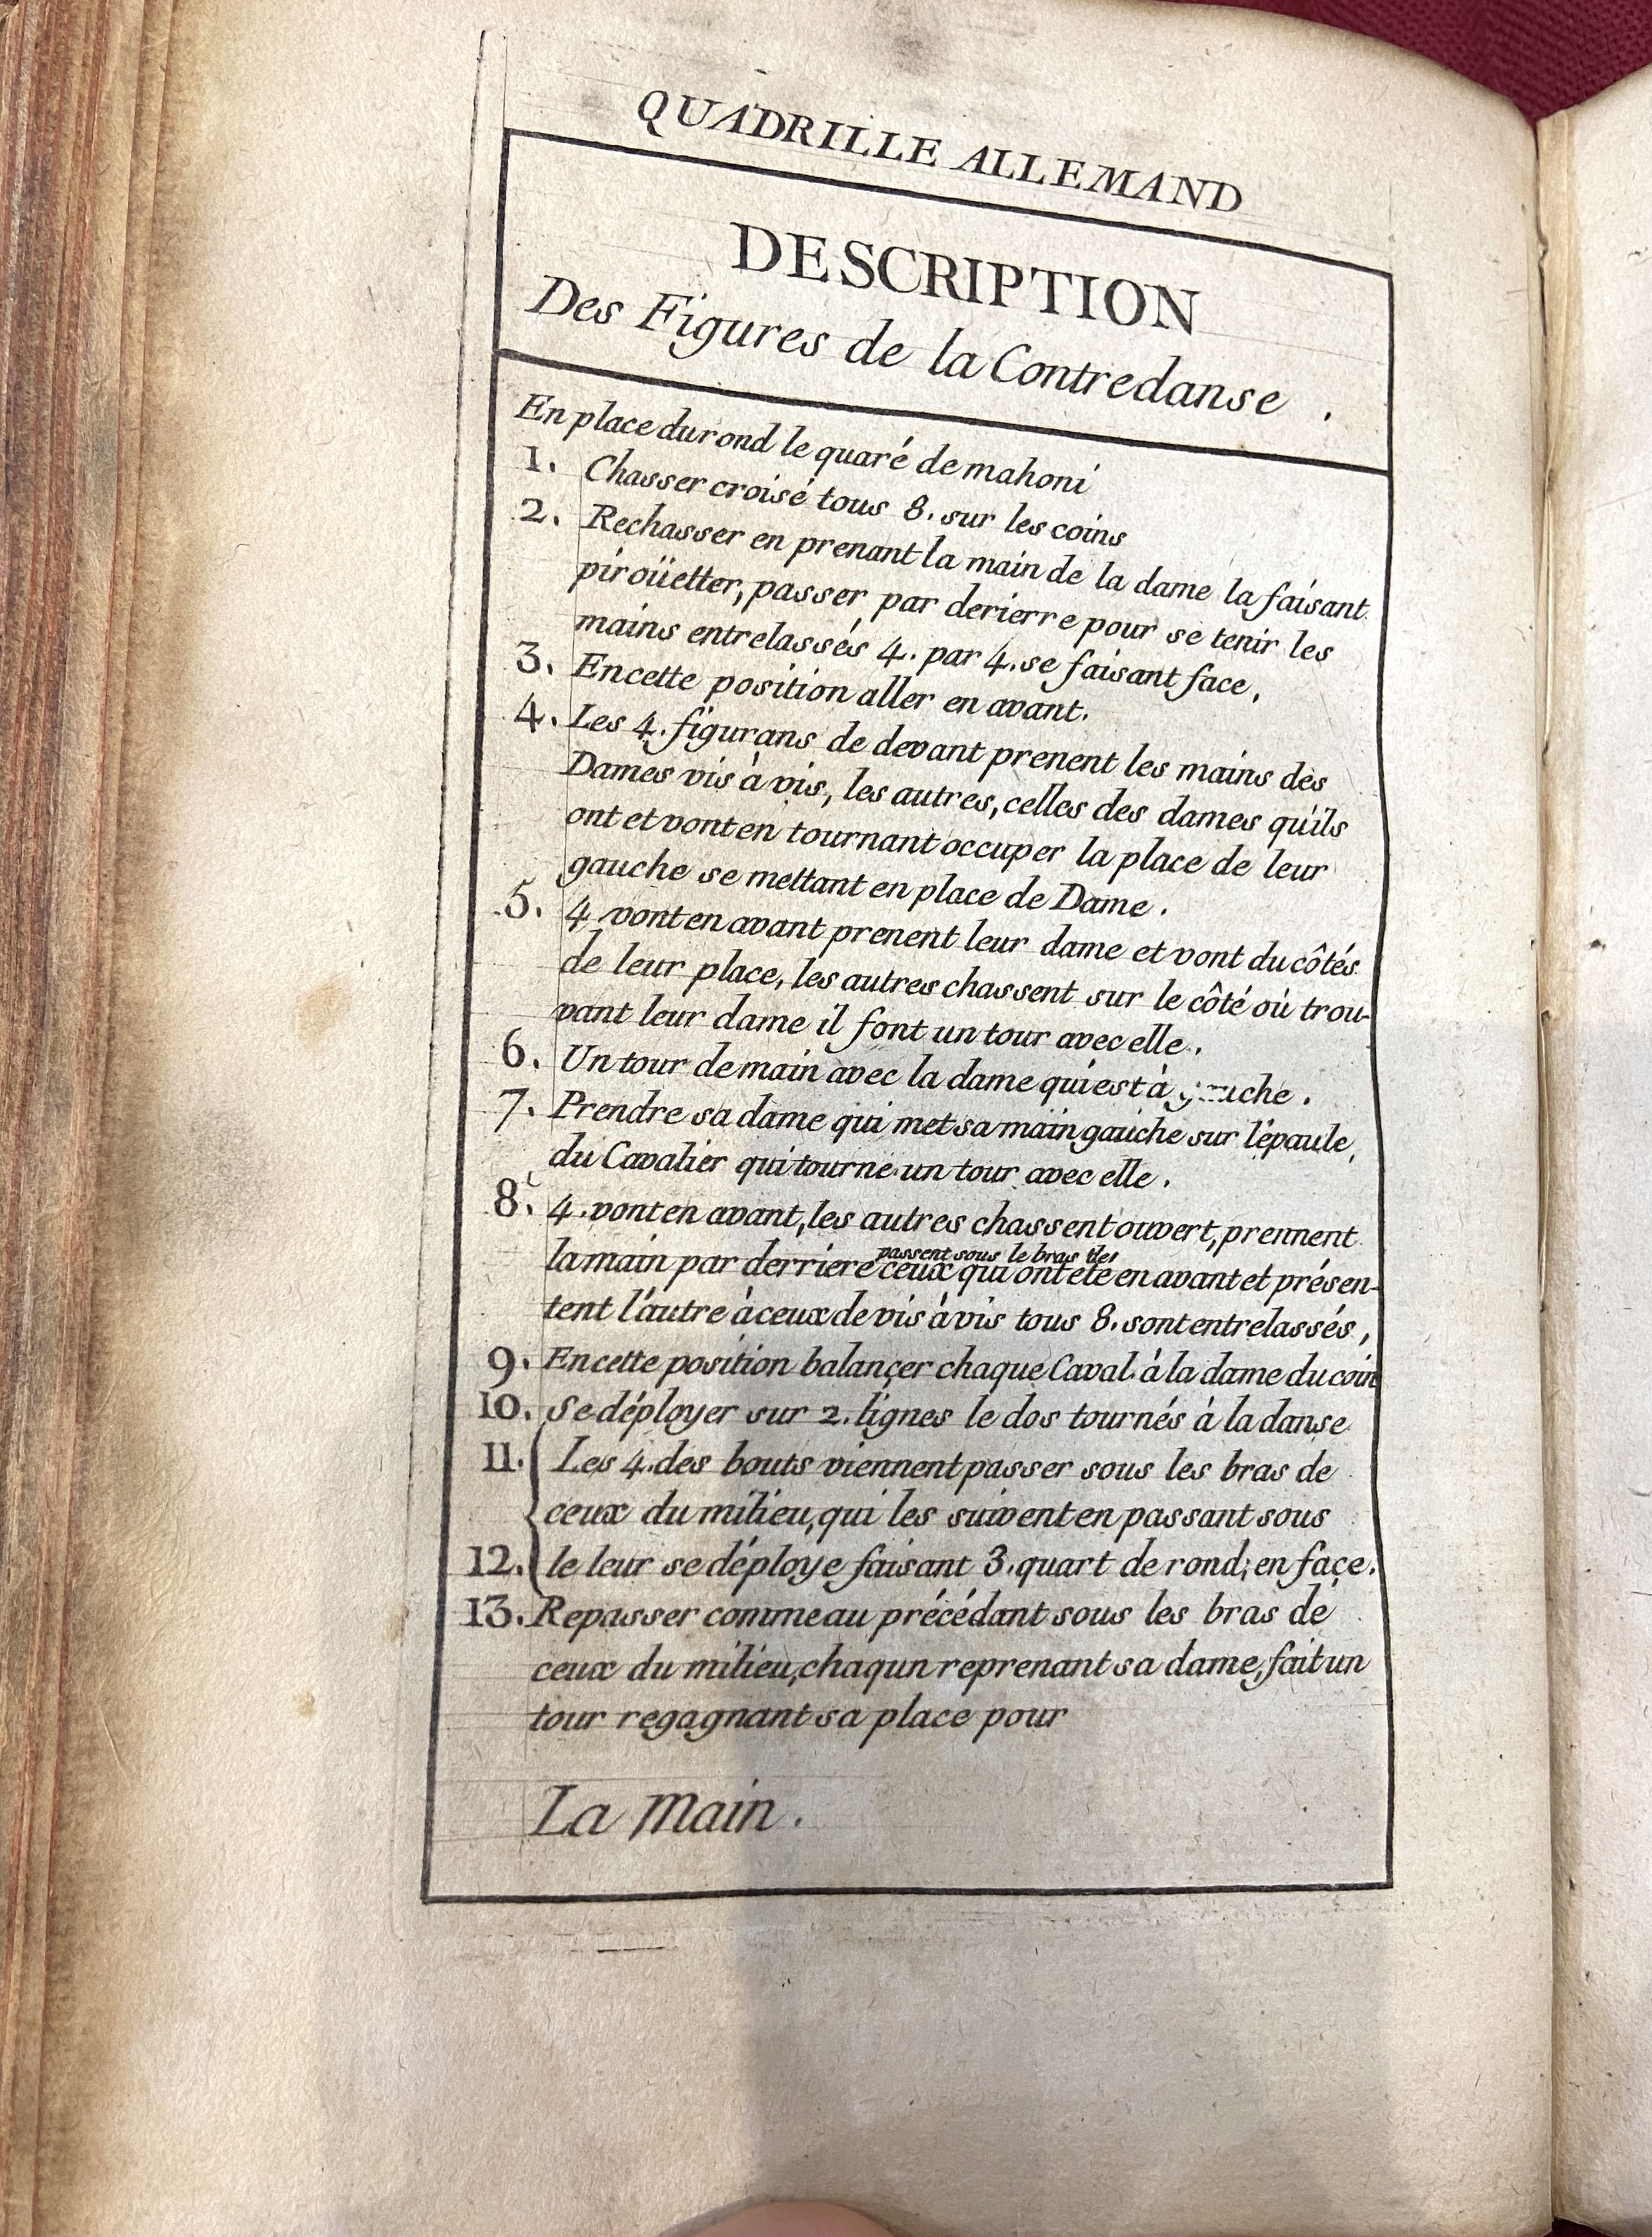 QUADRILLE ALLEMAND
DESCRIPTION
Des Figures de la Contredanse.
En place du rond le quaré de mahoni
1. Chasser croisé tous 8. sur les coins
2. Rechasser en prenant la main de la dame la faisant
piroüetter, passer par derierre pour se tenir les
mains entrelassés 4. par 4. se faisant face,
3. En cette position aller en avant.
4. Les 4. figurans de devant prenent les mains des
Dames vis à vis, les autres, celles des dames qu'ils
ont et vont en tournant occuper la place de leur
gauche se mettant en place de Dame.
5. 4 vont en avant prenent leur dame et vont du côtés
de leur place, les autres chassent sur le côté où trou-
vant leur dame il font un tour avec elle.
6. Un tour de main avec la dame qui est à gauche.
7. Prendre sa dame qui met sa main gauche sur l'épaule,
du Cavalier qui tourne un tour avec elle.
8. 4. vont en avant, les autres chassent ouvert, prennent
passent sous le bras des
la main par derriere ceux qui ont été en avant et présen-
tent l'autre à ceux de vis à vis tous 8. sont entrelassés,
9. En cette position balançer chaque Caval. à la dame du coin
10. Se déployer sur 2. lignes le dos tournés à la danse
11. Les 4. des bouts viennent passer sous les bras de
ceux du milieu, qui les suivent en passant sous
12. le leur se déploye faisant 3. quart de rond, en façe.
13. Repasser comme au précédant sous les bras de
ceux du milieu, chaqun reprenant sa dame, fait un
tour regagnant sa place pour
La Main.